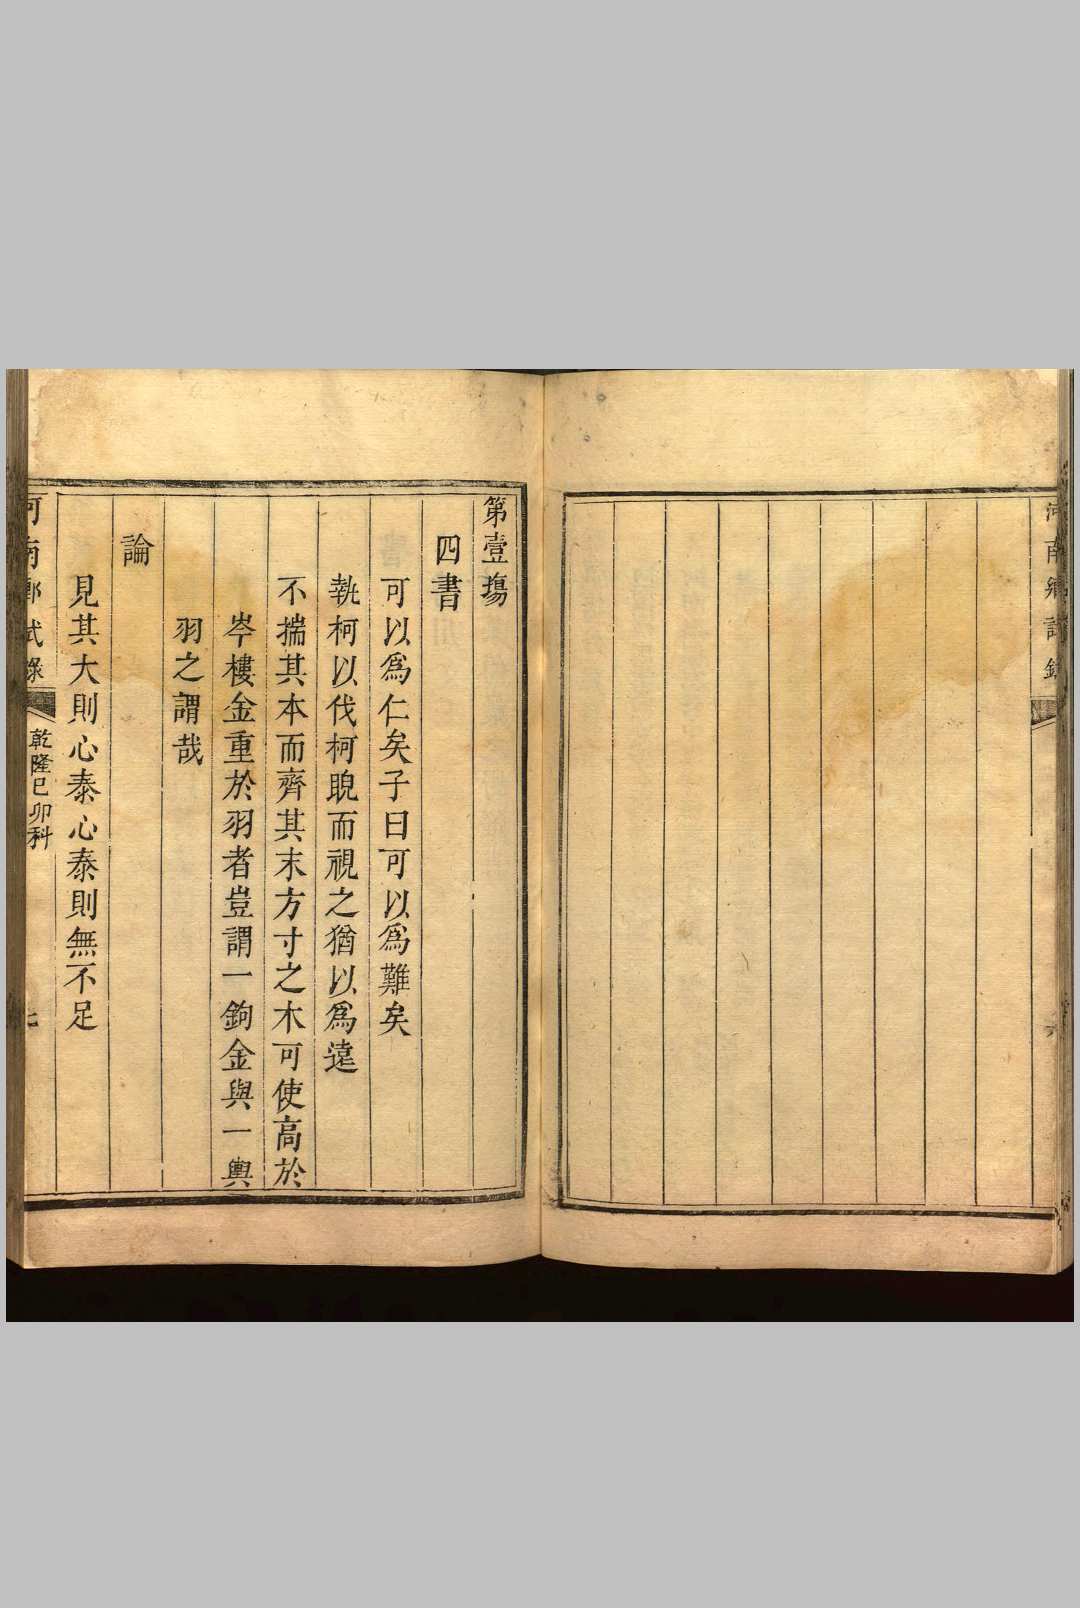 河南鄉試錄
六
第壹塲
四書
可以爲仁矣子曰可以爲難矣
執柯以伐柯睨而視之猶以爲遠
不揣其本而齊其末方寸之木可使高於
岑樓金重於羽者豈謂一鉤金與一輿
羽之謂哉
論
見其大則心泰心泰則無不足
河南鄉試錄
乾隆己卯科
七